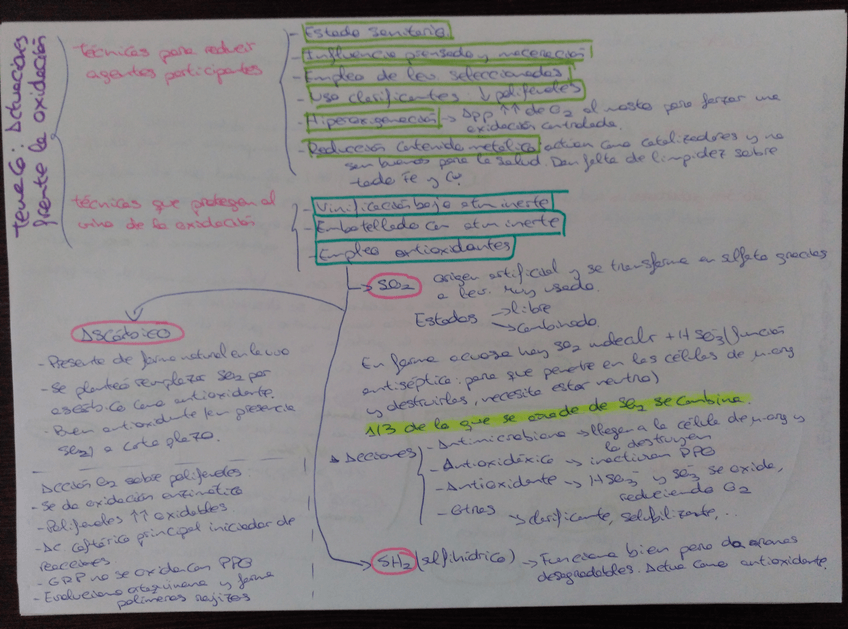 Tema 6: Actuaciones
frente la oxidación
técnicas para reducir
agentes participantes
- Estado sanitario
- Influencia prensado y maceración
- Empleo de lev. seleccionadas
- Uso clarificantes ↓ polifenoles
- Hiperoxigenación → App ↑↑ de O2 al mosto para forzar una
oxidación controlada.
- Reducción contenido metálico: actúan como catalizadores y no
son buenos para la salud. Dan falta de limpidez sobre
todo Fe y Cu.
técnicas que protegen al
vino de la oxidación
- Vinificación bajo atm inerte
- Embotellado con atm inerte
- Empleo antioxidantes
SO2 origen artificial y se transforma en sulfato gracias
a lev. Muy usado.
Estados → libre
→ combinado.
En forma acuosa hay SO2 molecular + HSO3 (función
antiséptica: para que penetre en las células de m.org
y destruirlas, necesita estar neutra)
1/3 de lo que se añade de SO2 se combina.
Acciones
- Antimicrobiano → llegan a la célula de m.org y
la destruyen
- Antioxidásico → inactivan PPO
- Antioxidante → HSO3⁻ y SO3⁼ se oxida,
reduciendo O2
- Otras → clarificante, solubilizante, ..
SH2 (sulfhídrico) → Funciona bien pero da aromas
desagradables. Actúa como antioxidante.
Ascórbico
- Presente de forma natural en la uva
- Se planteó remplazar SO2 por
ascórbico como antioxidante.
- Buen antioxidante (en presencia
SO2) a corto plazo.
Acción O2 sobre polifenoles
- Se da oxidación enzimática
- Polifenoles ↑↑ oxidables
- Ac caftárico principal iniciador de
reacciones
- GRP no se oxida con PPO
- Evoluciona a ortoquinona y forma
polímeros rojizos